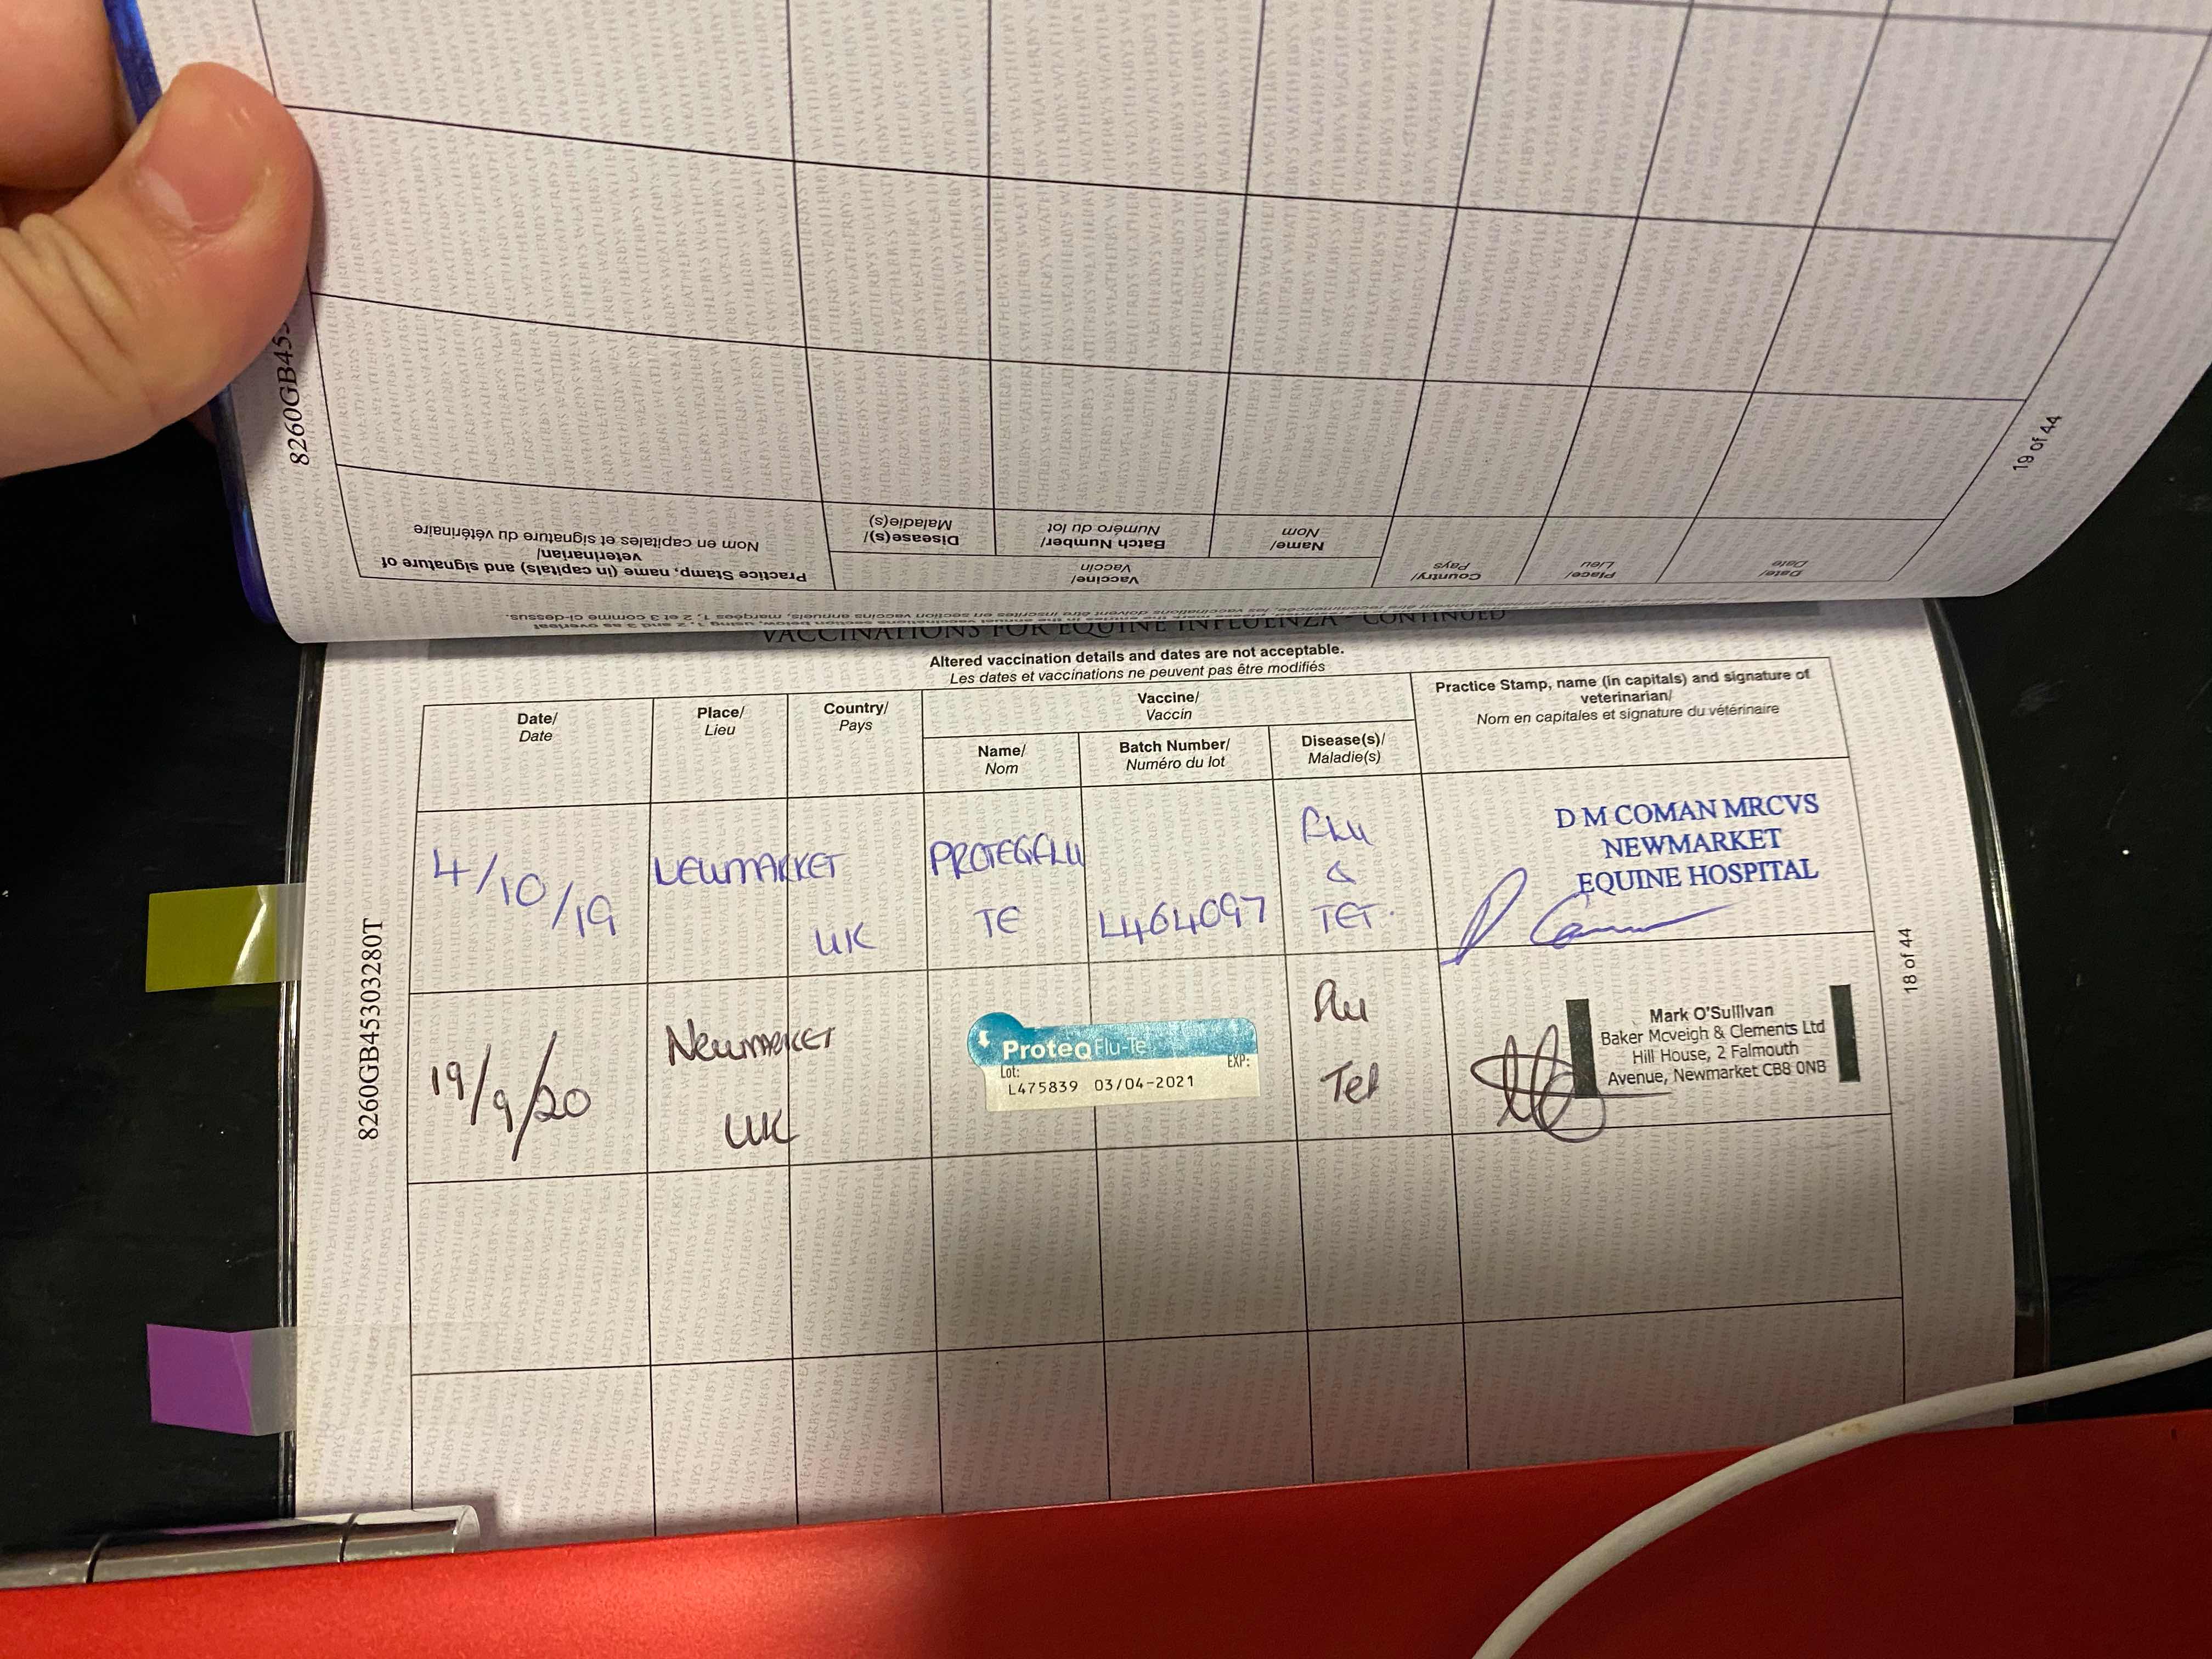 8260GB45
19 of 44
Practice Stamp, name (in capitals) and signature of
veterinarian/
Nom en capitales et signature du vétérinaire
Vaccine/
Vaccin
Disease(s)/
Maladie(s)
Batch Number/
Numéro du lot
Name/
Nom
Country/
Pays
Place/
Lieu
Date/
Date
VACCINATIONS FOR EQUINE INFLUENZA - CONTINUED
Altered vaccination details and dates are not acceptable.
Les dates et vaccinations ne peuvent pas être modifiés
Date/
Date
Place/
Lieu
Country/
Pays
Vaccine/
Vaccin
Name/
Nom
Batch Number/
Numéro du lot
Disease(s)/
Maladie(s)
Practice Stamp, name (in capitals) and signature of
veterinarian/
Nom en capitales et signature du vétérinaire
4/10/19
NEWMARKET
UK
PROTEQFLU
TE
L464097
FLU
&
TET.
D M COMAN MRCVS
NEWMARKET
EQUINE HOSPITAL
19/9/20
NEWMARKET
UK
ProteqFlu-Te
Lot:
EXP:
L475839 03/04-2021
Flu
Tet
Mark O'Sullivan
Baker Mcveigh & Clements Ltd
Hill House, 2 Falmouth
Avenue, Newmarket CB8 0NB
8260GB45303280T
18 of 44